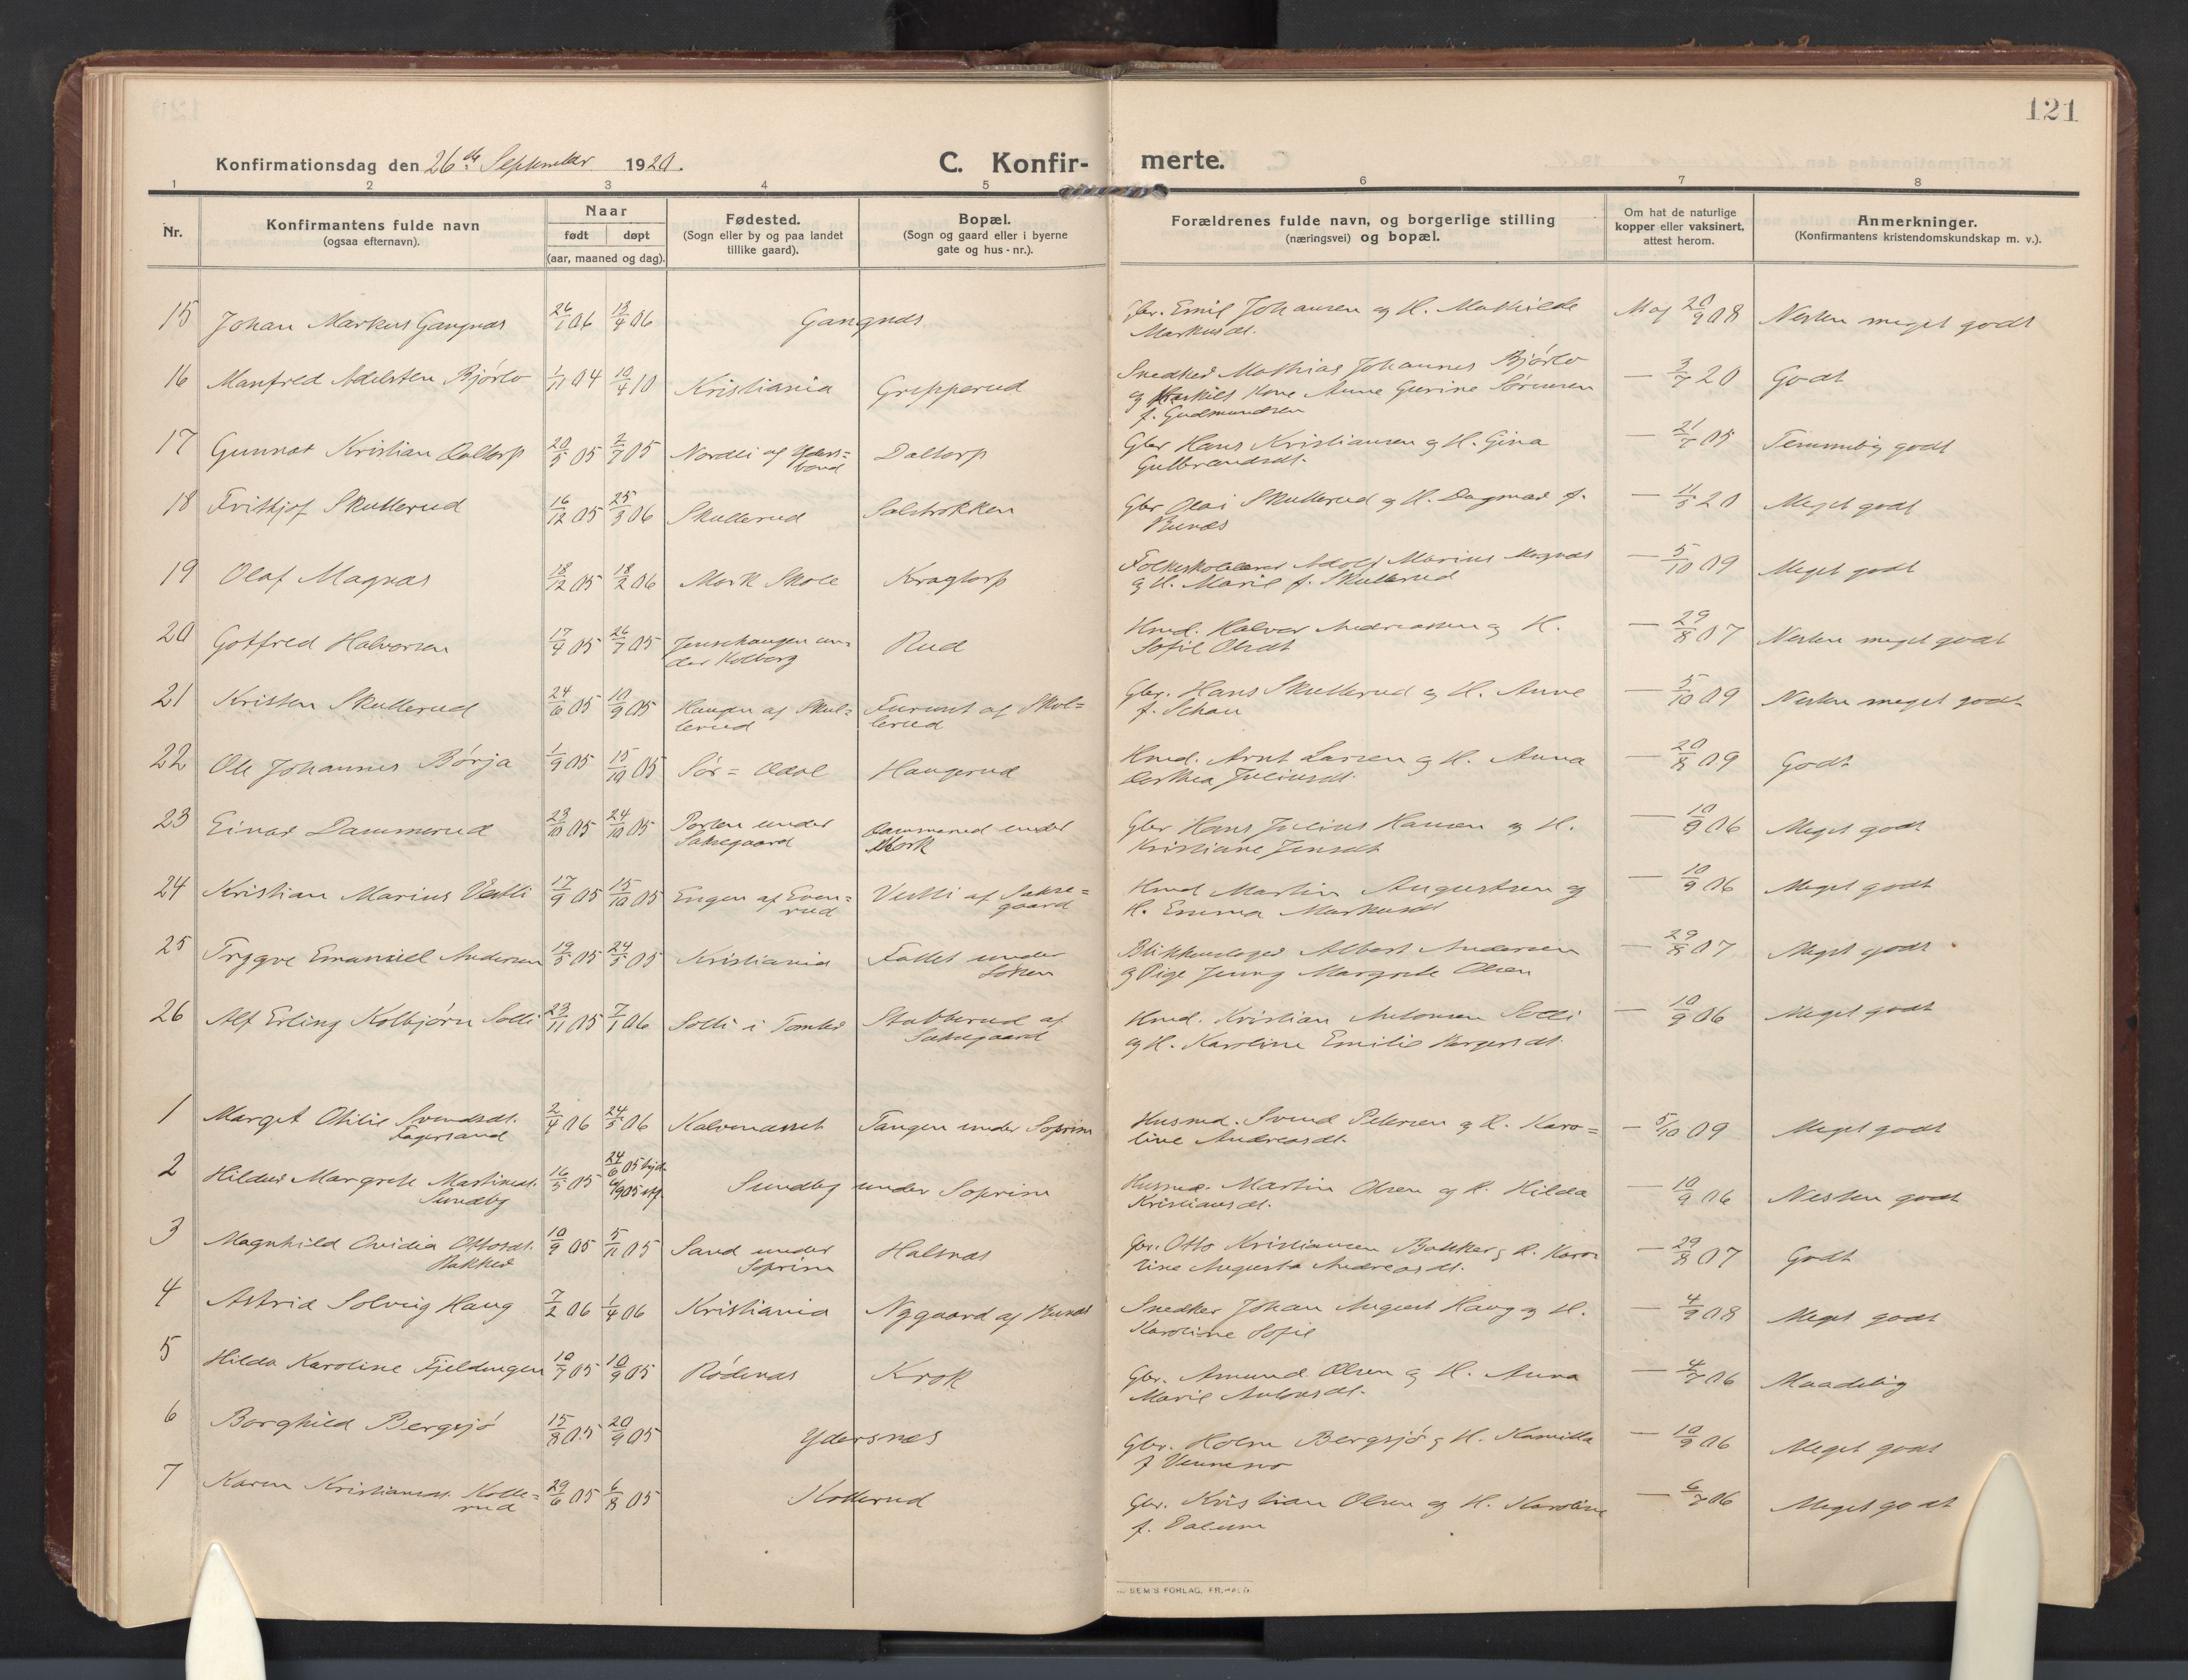 121
Konfirmationsdag den 26de September 1920.
C. Konfir-
merte.
1 2 3 4 5 6 7 8
Nr.
Konfirmantens fulde navn
(ogsaa efternavn).
Naar
født døpt
(aar, maaned og dag).
Fødested.
(Sogn eller by og paa landet
tillike gaard).
Bopæl.
(Sogn og gaard eller i byerne
gate og hus-nr.).
Forældrenes fulde navn, og borgerlige stilling
(næringsvei) og bopæl.
Om hat de naturlige
kopper eller vaksinert,
attest herom.
Anmerkninger.
(Konfirmantens kristendomskundskap m. v.).
15 Johan Markus Gangnæs 26/1 06 13/4 06 Gangnæs Gbr. Emil Johansen og H. Mathilde Maj 20/9 08 Nesten meget godt
Markusdt.
16 Manfred Adelsten Bjørlo 1/11 04 10/4 10 Kristiania Grepperud Snedker Mathias Johannes Bjørlo — 3/7 20 Godt
og Kone Anne Gurine Sørensen
f. Gudmundsen
17 Gunnar Kristian Daltorp 20/5 05 2/7 05 Nordli af Daltorp Gbr Hans Kristiansen og H. Gina — 21/7 05 Temmelig godt
Gulbrandsdt.
18 Frithjof Skullerud 16/12 05 25/3 06 Skullerud Gbr Olai Skullerud og H. Dagmar f. — 11/5 20 Meget godt
Bunæs
19 Olaf Magnæs 18/12 05 18/2 06 Mork Skole Kragtorp Folkeskolelærer Adolf Marius Magnæs — 5/10 09 Meget godt
og H. Marie f. Skullerud
20 Gotfred Halvorsen 17/4 05 26/7 05 Jenshaugen un- Rud Hmd. Halvor Andreassen og H. — 29/8 07 Nesten meget godt
der Kolberg Sofie Olsdt
21 Kristen Skullerud 24/6 05 10/9 05 Haugen af Skul= af Skul= Gbr. Hans Skullerud og H. Anne — 5/10 09 Nesten meget godt
lerud lerud f. Schau
22 Ole Johannes Børja 1/9 05 15/10 05 Sør=Odal Haugerud Hmd. Arnt Larsen og H. Anna — 20/8 09 Godt
Dorthea Juliusdt.
23 Einar Dammerud 23/10 05 24/10 05 Porten under Dammerud under Gbr Hans Julius Hansen og H. — 10/9 06 Meget godt
Saksegaard Mork Kristiane Jensdt
24 Kristian Marius Vestli 17/9 05 15/10 05 Engen af Even= Vestli af Sakse= Hmd Martin Augustsen og — 10/9 06 Meget godt
rud gaard H. Emma Markusdt
25 Trygve Emanuel Andersen 19/5 05 24/5 05 Kristiania Fallet under Blikkenslager Albert Andersen — 29/8 07 Meget godt
og Pige Jenny Margrete Olsen
26 Alf Erling Kolbjørn Solli 23/11 05 7/1 06 Solli i Tomter Stabberud af Hmd. Kristian Antonsen Solli — 10/9 06 Meget godt
Saksegaard og H. Karoline Emilie
1 Marget Otilie Svendsdt. 2/4 06 24/5 06 Kalvenæsset Tangen under Soprim Husmd. Svend Petersen og H. Karo= — 5/10 09 Meget godt
Fagersand line Andreasdt.
2 Hildur Margrete Martinsdt. 16/5 05 24/6 05 hjd. Sundby under Soprim Husmd. Martin Olsen og H. Hilda — 10/9 06 Nesten godt
Sundby Kristiansdt.
3 Magnhild Ovidia Ottosdt. 10/9 05 5/11 05 Sand under Halsnæs Gbr. Otto Kristiansen Bakker og H. Karo= — 29/8 07 Godt
Bakker Soprim line Augusta Andreasdt.
4 Astrid Solveig Haug 7/2 06 1/4 06 Kristiania Nygaard af Bunæs Snedker Johan August Haug og H. — 4/9 08 Meget godt
Karoline Sofie
5 Hilda Karoline Fjeldengen 10/7 05 10/9 05 Rødenæs Krok Gbr. Amund Olsen og H. Anna — 4/7 06 Maadelig
Marie Antonsdt.
6 Borghild Bergsjø 15/8 05 20/9 05 Ydersnes Gbr. Holm Bergsjø og H. Kamilla — 10/9 06 Meget godt
f
7 Karen Kristiansdt. Kolle= 29/6 05 6/8 05 Kollerud Gbr. Kristian Olsen og H. Karoline — 6/7 06 Meget godt
rud f. Dalum
SEM'S FORLAG, FR.HALD.